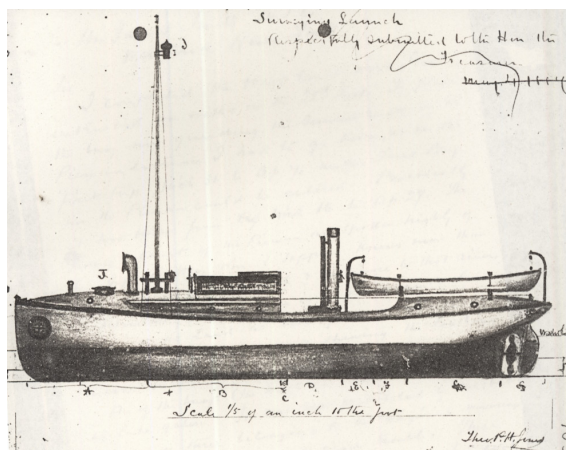 Surveying Launch
Respectfully submitted to the Hon the
Treasurer
J
J
A
A
B
C
D
E
F
Scale 1/5 of an inch to the foot
Theo. R. H.